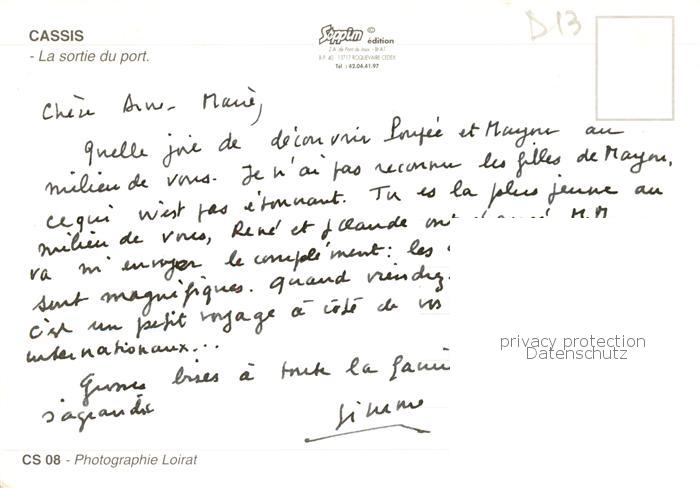 CASSIS
- La sortie du port.
Söppim © édition
Z.A. de Pont de Joux - BHAT
B.P. 40 - 13717 ROQUEVAIRE CEDEX
Tél : 42.04.41.97
D 13
Chère Anne-Marie,
Quelle joie de découvrir Poupée et Mayou au
milieu de vous. Je n'ai pas reconnu les filles de Mayou,
ce qui n'est pas étonnant. Tu es la plus jeune au
milieu de vous, René et Yolande ont M.M
va m'envoyer le complément : les
sont magnifiques. Quand viendrez
c'est un petit voyage à côté de vos
internationaux...
Grosses bises à toute la fami
s'agrandit
Simone
privacy protection
Datenschutz
CS 08 - Photographie Loirat